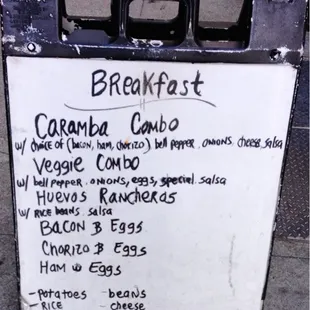 Breakfast
Caramba Combo
w/ choice of (bacon, ham, chorizo) bell pepper, onions, cheese, salsa
Veggie Combo
w/ bell pepper, onions, eggs, special salsa
Huevos Rancheros
w/ Rice beans salsa
Bacon B Eggs
Chorizo B Eggs
Ham w Eggs
-potatoes -beans
-Rice -cheese